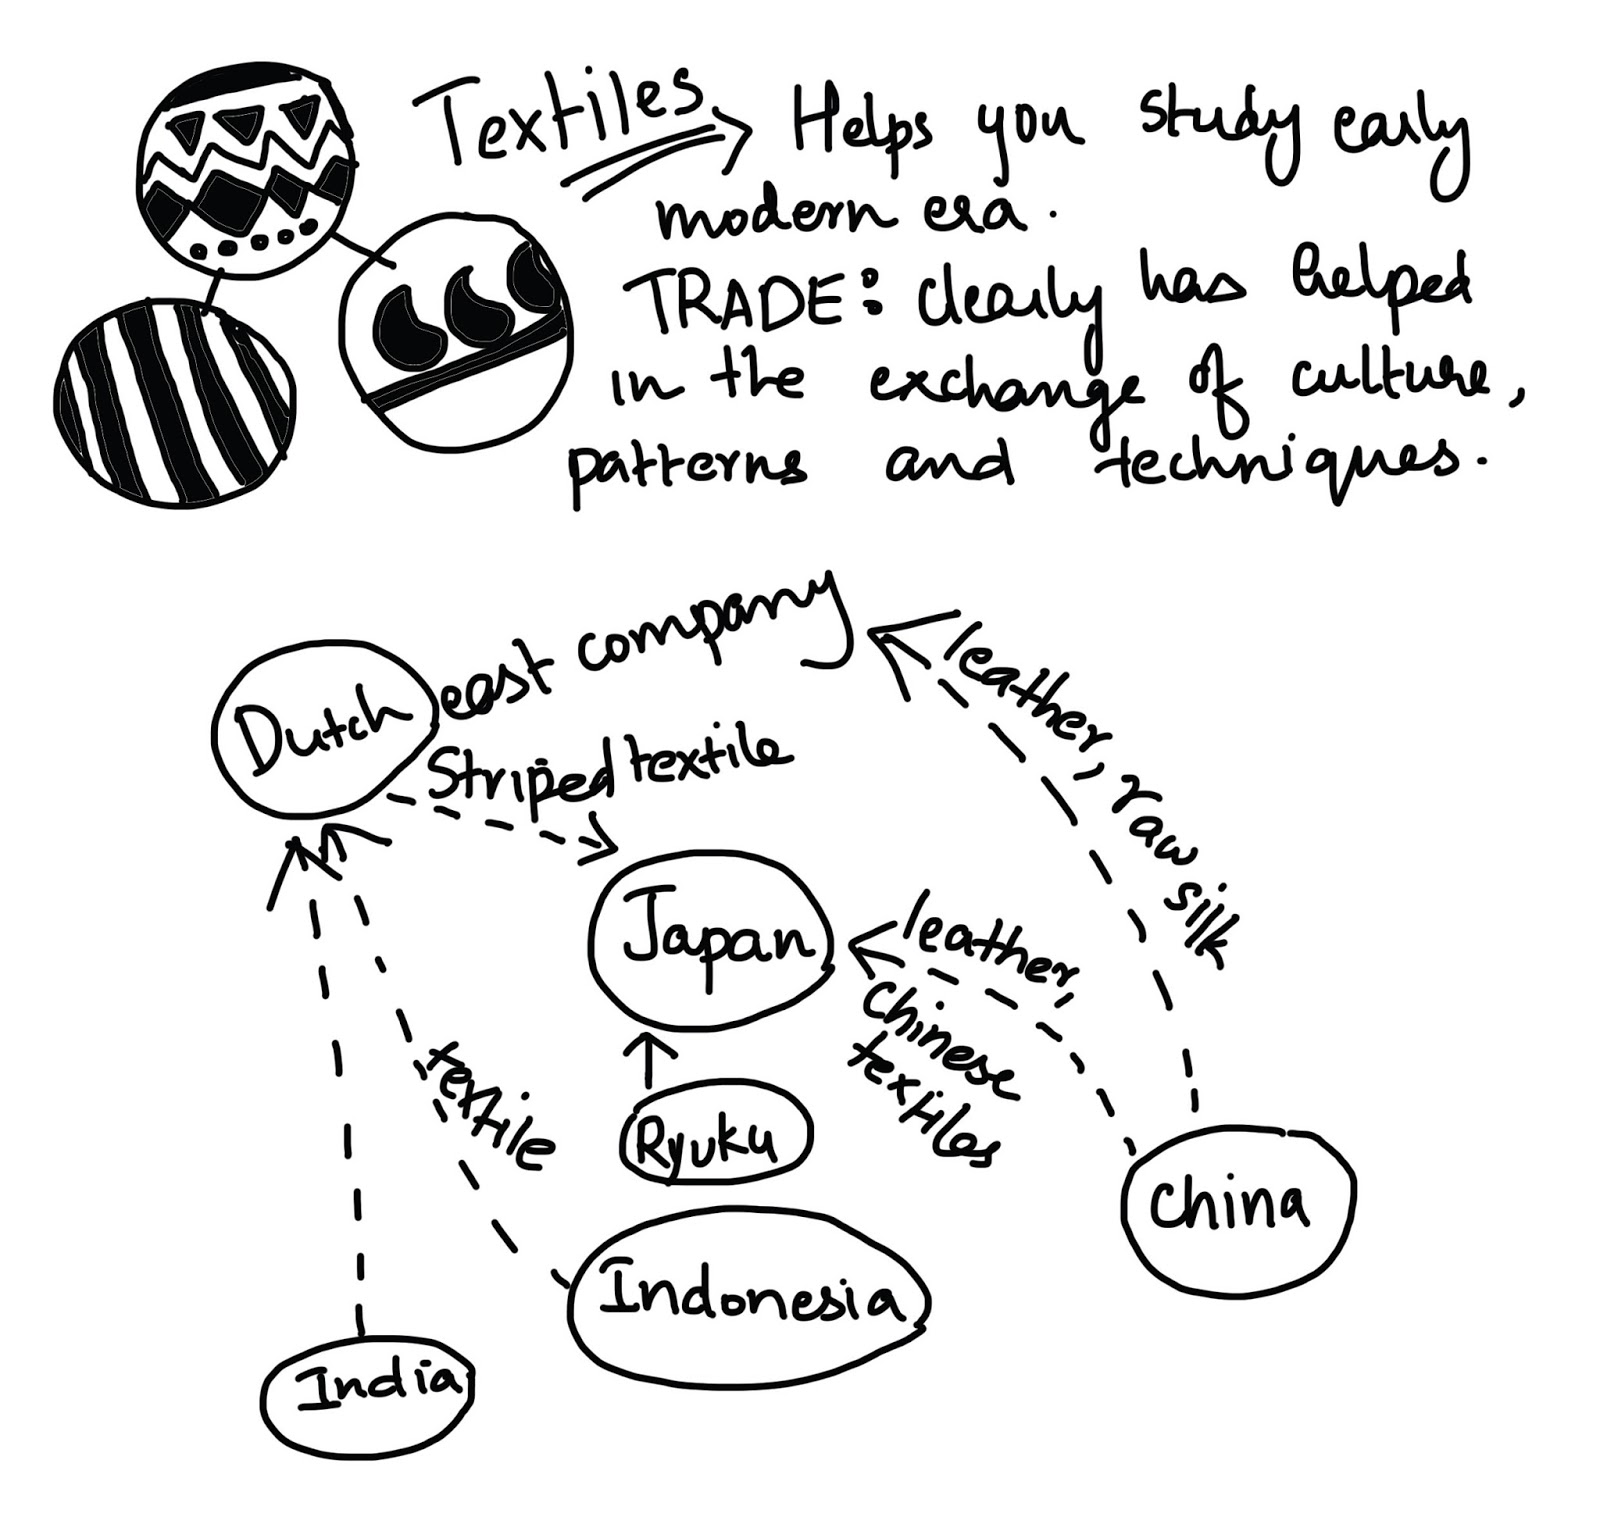 Textiles → Helps you study early
modern era.
TRADE: clearly has helped
in the exchange of culture,
patterns and techniques.
Dutch east company
leather, raw silk
Striped textile
Japan
leather,
Chinese
textiles
textile
Ryuku
China
Indonesia
India